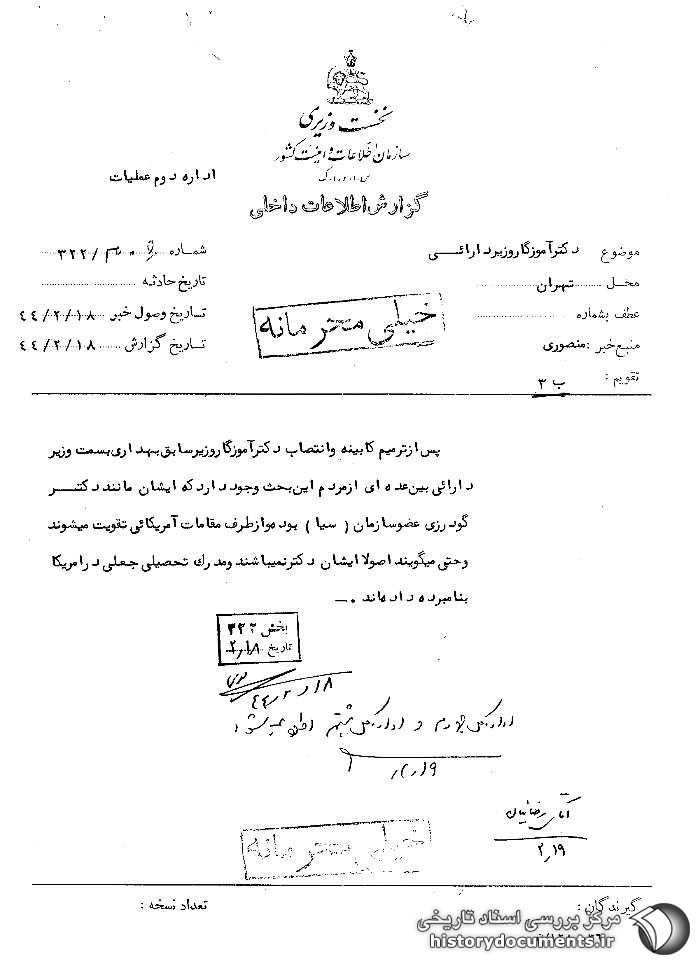 نخست وزیری
سازمان اطلاعات و امنیت کشور
س.ا.و.ا.ک
اداره دوم عملیات
گزارش اطلاعات داخلی
موضوع دکترآموزگاروزیردارائی
محل تهران
عطف بشماره
منبع خبر : منصوری
تقویم : ب ۳
شماره /۳۲۲
تاریخ حادثه
تاریخ وصول خبر ۴۴/۲/۱۸
تاریخ گزارش ۴۴/۲/۱۸
خیلی محرمانه
پس ازترمیم کابینه وانتصاب دکترآموزگاروزیرسابق بهداری بسمت وزیر
دارائی بین عده ای ازمردم این بحث وجود دارد که ایشان مانند دکتر
گودرزی عضوسازمان ( سیا ) بوده وازطرف مقامات آمریکائی تقویت میشوند
وحتی میگویند اصولا ایشان دکترنمیباشند ومدرك تحصیلی جعلی درامریکا
بنامبرده داده‌اند ۰ــ
بخش ۳۲۲
تاریخ ۲/۱۸
۴۴/۲/۱۸
اداره کل چهارم و اداره کل هشتم اعلام میشود
۲/۱۹
آقای رضائیان
۲/۱۹
خیلی محرمانه
گیرندگان :
تعداد نسخه :
مرکز بررسی اسناد تاریخی
historydocuments.ir